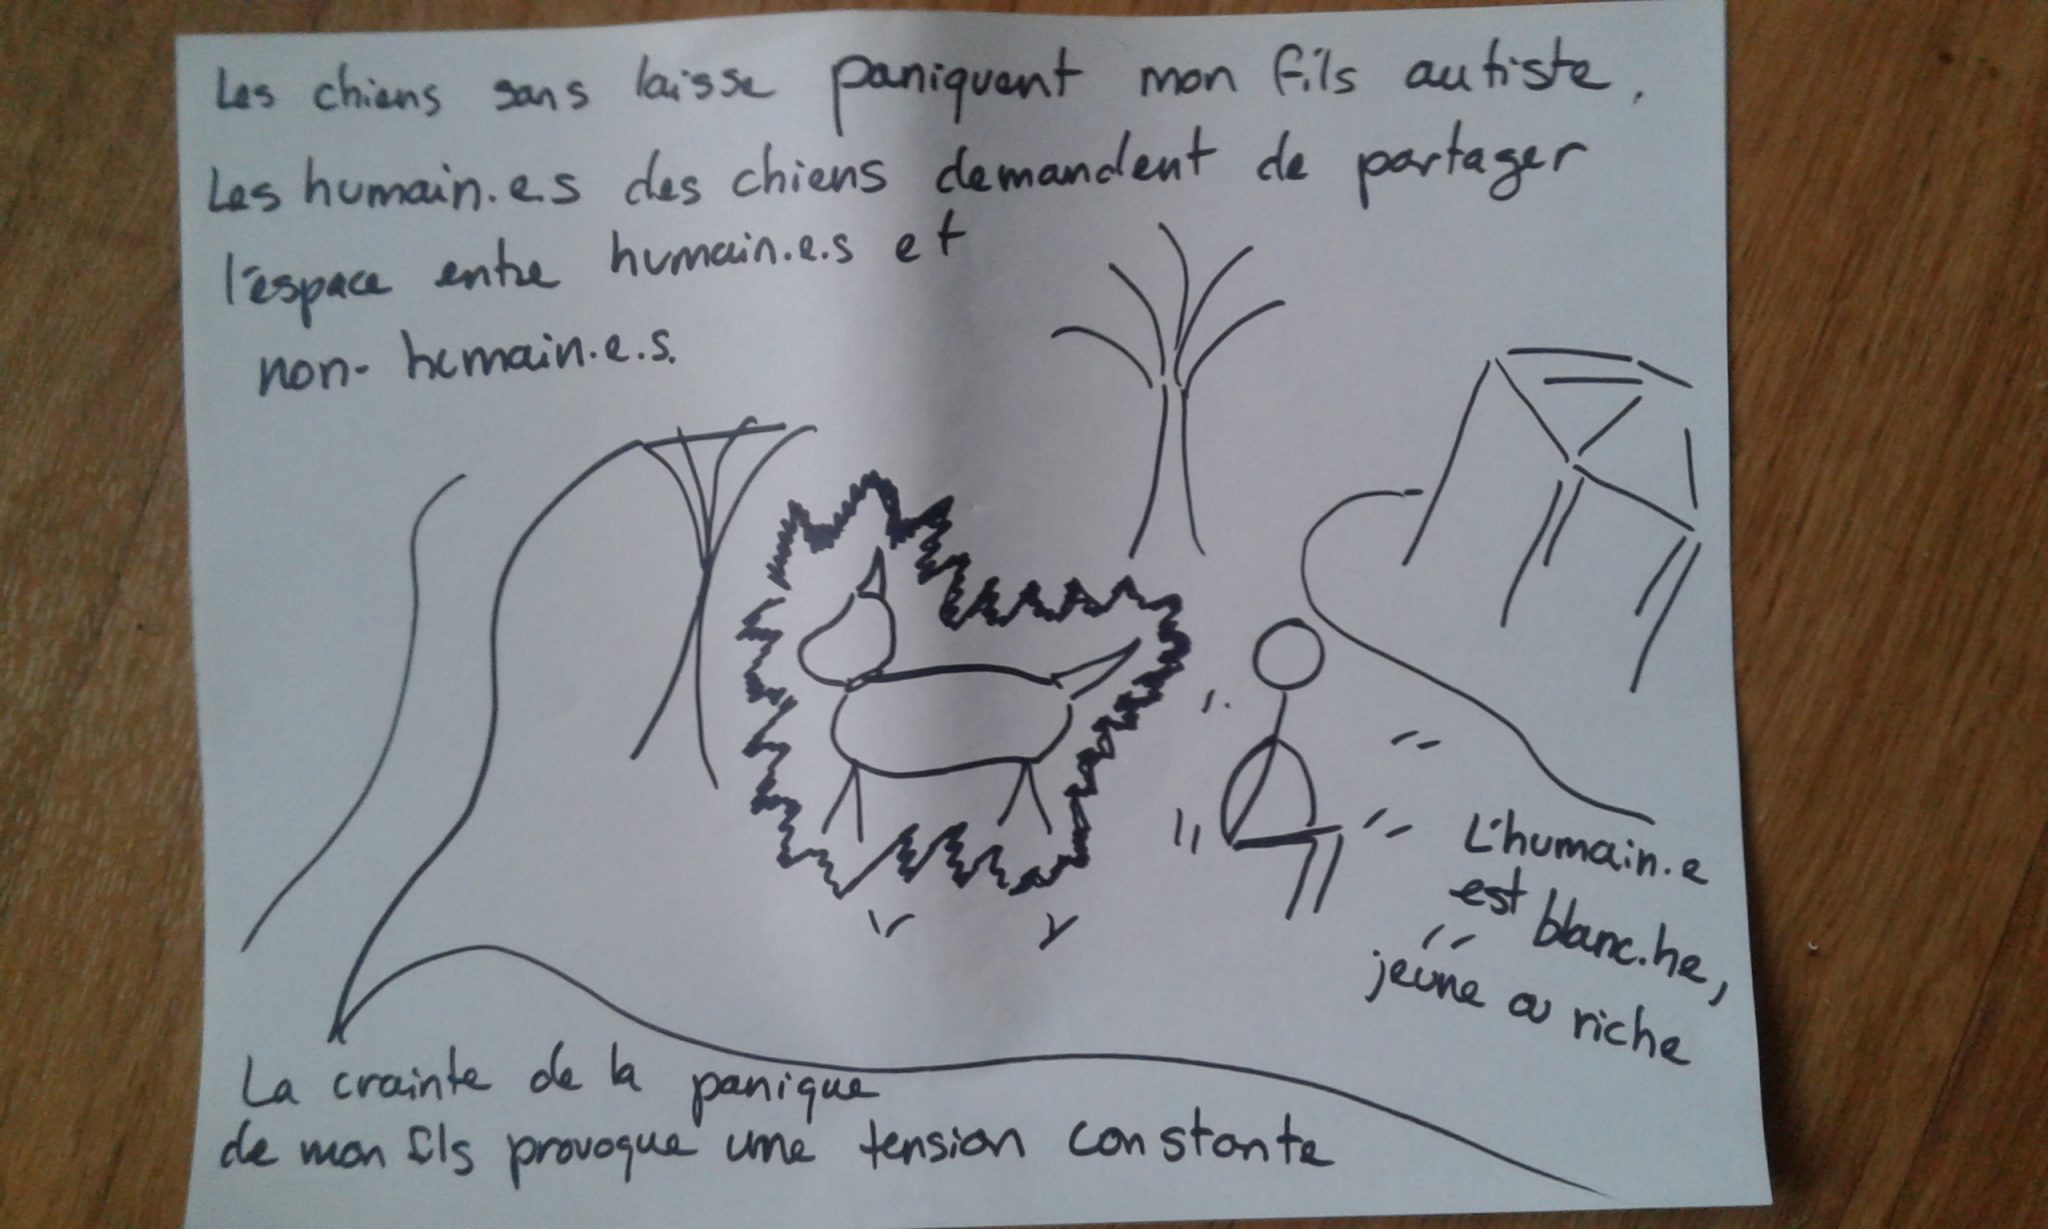 Les chiens sans laisse paniquent mon fils autiste.
Les humain.e.s des chiens demandent de partager
l'espace entre humain.e.s et
non-humain.e.s.
L'humain.e
est blanc.he,
jeune ou riche
La crainte de la panique
de mon fils provoque une tension constante